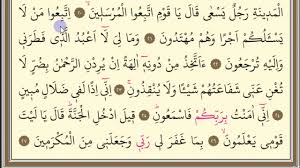 الْمَدِينَةِ رَجُلٌ يَسْعَى قَالَ يَا قَوْمِ اتَّبِعُوا الْمُرْسَلِينَ ﴿٢٠﴾ اِتَّبِعُوا مَنْ لَا
يَسْئَلُكُمْ اَجْرًا وَهُمْ مُهْتَدُونَ ﴿٢١﴾ وَمَا لِىَ لَا اَعْبُدُ الَّذِى فَطَرَنِى
وَاِلَيْهِ تُرْجَعُونَ ﴿٢٢﴾ ءَاَتَّخِذُ مِنْ دُونِهِ اٰلِهَةً اِنْ يُرِدْنِ الرَّحْمٰنُ بِضُرٍّ لَا
تُغْنِ عَنِّى شَفَاعَتُهُمْ شَيْئًا وَلَا يُنْقِذُونِ ﴿٢٣﴾ اِنِّى اِذًا لَفِى ضَلَالٍ مُبِينٍ
﴿٢٤﴾ اِنِّى اٰمَنْتُ بِرَبِّكُمْ فَاسْمَعُونِ ﴿٢٥﴾ قِيلَ ادْخُلِ الْجَنَّةَ قَالَ يَا لَيْتَ
قَوْمِى يَعْلَمُونَ ﴿٢٦﴾ بِمَا غَفَرَ لِى رَبِّى وَجَعَلَنِى مِنَ الْمُكْرَمِينَ ﴿٢٧﴾